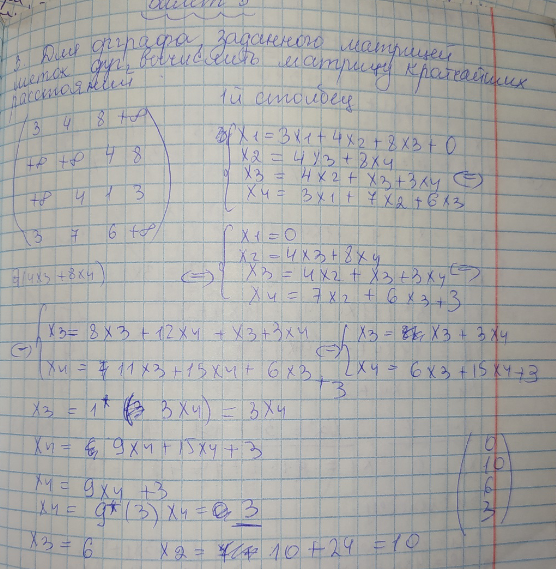 Билет 3
3. Для орграфа, заданного матрицей
меток дуг, вычислить матрицу кратчайших
расстояний
1й столбец
3 4 8 +∞
+∞ +∞ 4 8
+∞ 4 1 3
3 7 6 +∞
x1 = 3x1 + 4x2 + 8x3 + 0
x2 = 4x3 + 8x4
x3 = 4x2 + x3 + 3x4 (=)
x4 = 3x1 + 7x2 + 6x3
(4x3 + 8x4)
(=)
x1 = 0
x2 = 4x3 + 8x4
x3 = 4x2 + x3 + 3x4 (=)
x4 = 7x2 + 6x3 + 3
(=)
x3 = 8x3 + 12x4 + x3 + 3x4
x4 = 11x3 + 15x4 + 6x3 + 3
(=)
x3 = x3 + 3x4
x4 = 6x3 + 15x4 + 3
x3 = 1* (3x4) = 3x4
x4 = 9x4 + 15x4 + 3
x4 = 9x4 + 3
x4 = 9*(3) x4 = 3
x3 = 6 x2 = 10 + 24 = 10
0
10
6
3